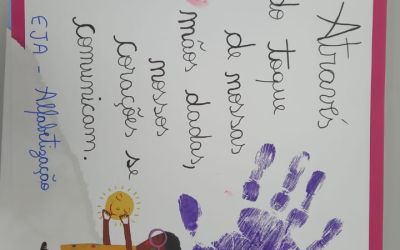 Através
do toque
de nossas
mãos dadas,
nossos
corações se
comunicam.
EJA - Alfabetização